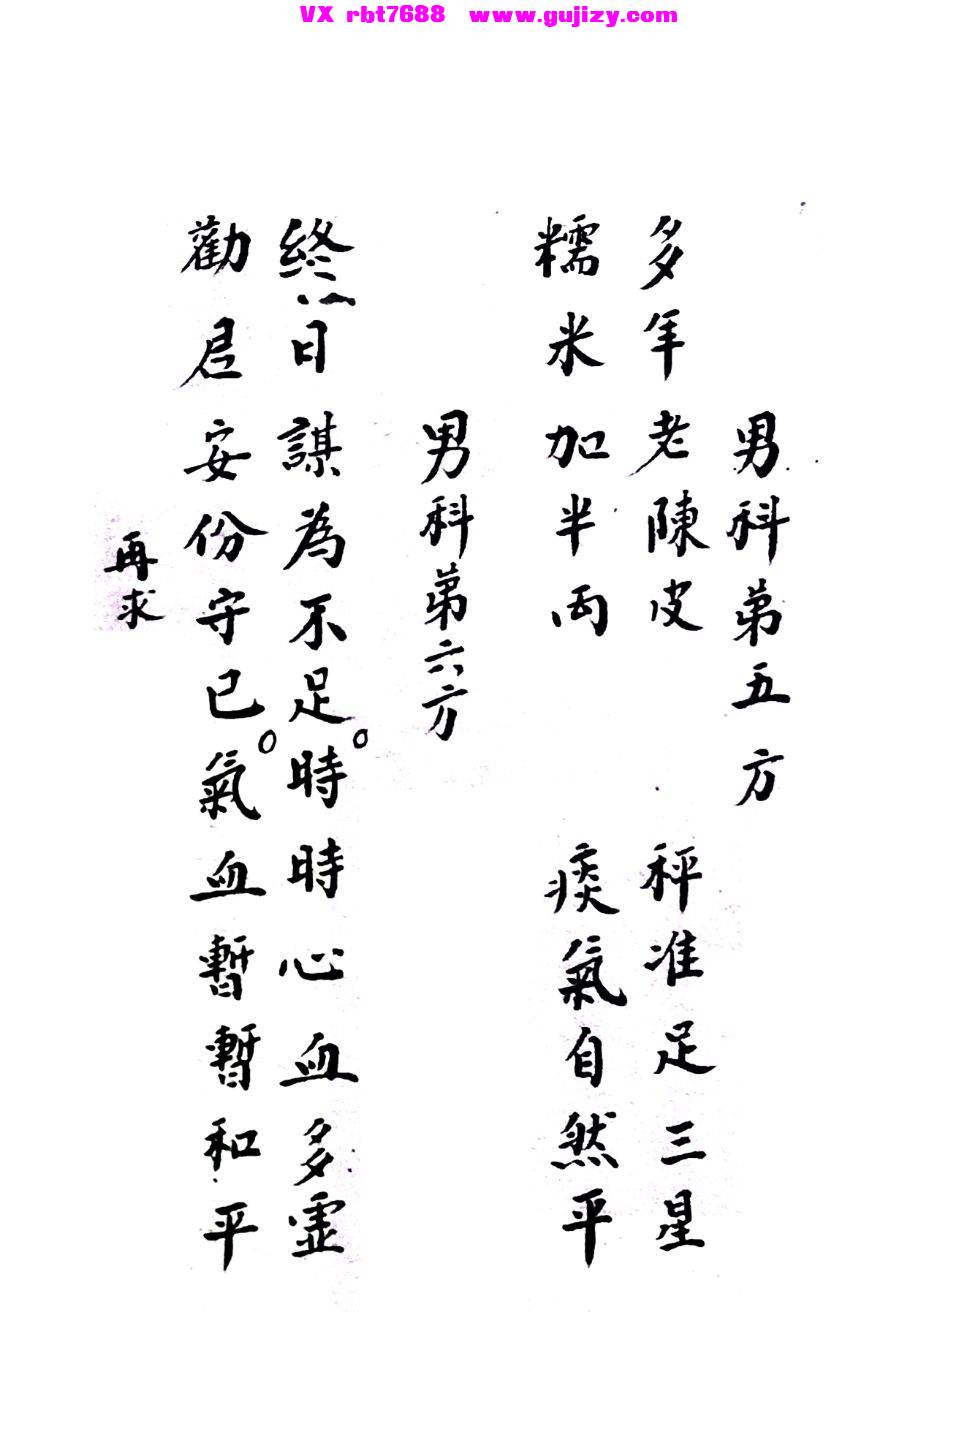 VX rbt7688 www.gujizy.com
男科第五方
多年老陳皮 秤准足三星
糯米加半両 痰氣自然平
男科第六方
終日謀為不足。時時心血多虛
勸君安份守已。氣血暫暫和平
再求